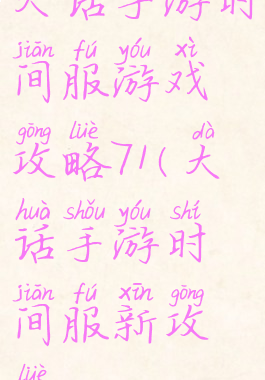 大话手游时
jiān fú yóu xì
间服游戏
gōng lüè dà
攻略71(大
huà shǒu yóu shí
话手游时
jiān fú xīn gōng
间服新攻
lüè